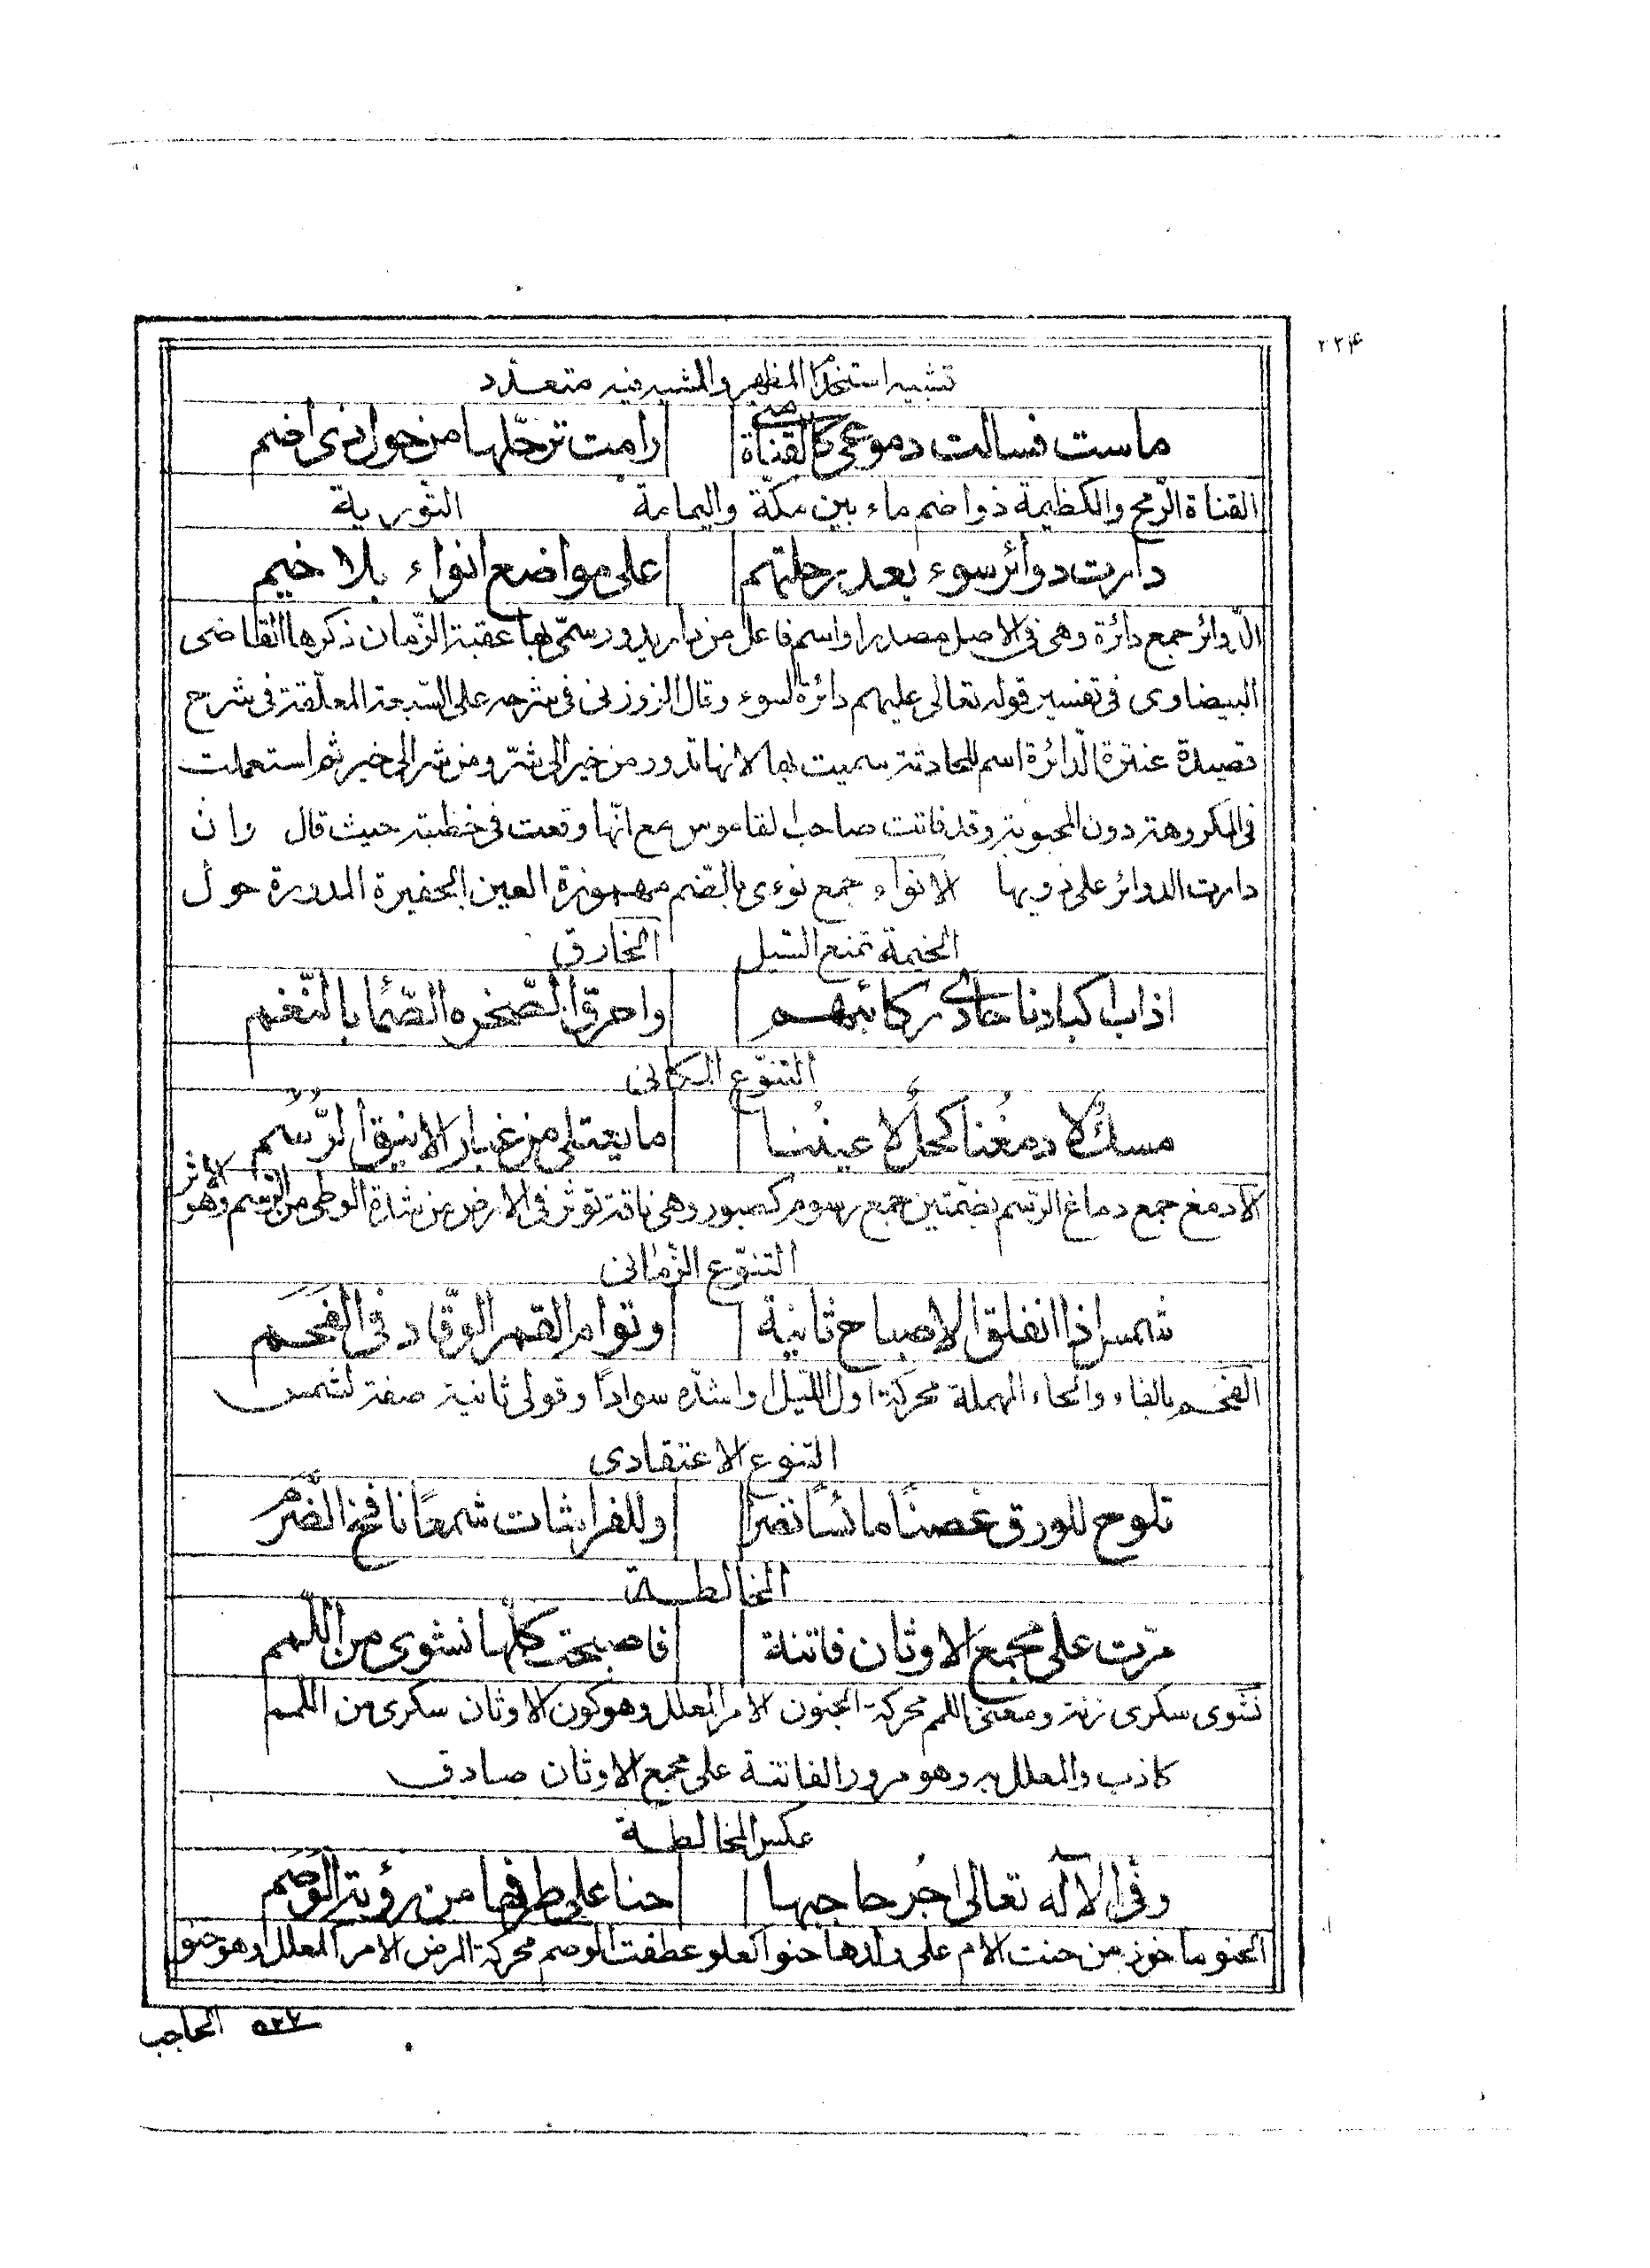 ۲۲۴
تشبيه استخدام المظهر والمشبه فيه متعدد
ماست فسالت دموعي كالقناة رامت ترحّلها من حول ذى اضم
القناة الرّمح والكظيمة ذو اضم ماء بين مكّة واليمامة التّورية
دارت دوائر سوء بعد رحلتهم على مواضع انواء بلا خيم
الدّوائر جمع دائرة وهى فى الاصل مصدر او اسم فاعل من دار يدور سمّى بها عقبة الزّمان ذكرها القاضى
البيضاوى فى تفسير قوله تعالى عليهم دائرة السوء وقال الزوزنى فى شرحه على السّبعة المعلّقة فى شرح
قصيدة عنترة الدّائرة اسم للحادثة سميت بها لانها تدور من خير الى شرّ ومن شر الى خير ثم استعملت
فى المكروهة دون المحبوبة وقد فاتت صاحب القاموس مع انّها وقعت فى خطبته حيث قال وان
دارت الدوائر على ذويها الانواء جمع نوءى بالضّم مهموزة العين الحفيرة المدورة حول
الخيمة تمنع السّيل الخارق
اذاب اكبادنا حادى ركائبهم واحرق الصّخره الصّمّا بالنّغم
التنوّع المكانى
مسك لادمغنا كحل لاعيننا ما يعتلى من غبار الاينق الرّسم
الادمغ جمع دماغ الرّسم بضمّتين جمع رسوم كصبور وهى ناقة تؤثر فى الارض من شدة الوطى من الرّسم وهو الاثر
التنوّع الزّمانى
شمس اذا انفلق الاصباح ثانية وتوام القمر الوقّاد فى الفحم
الفحم بالفاء والحاء المهملة محركة اول اللّيل او اشدّه سوادًا وقولى ثانية صفة لشمس
التنوع الاعتقادى
تلوح للورق غصنًا مائسًا نضرا وللفراشات شمعًا نافخ الضّرم
المخالطة
مرّت على مجمع الاوثان فاتنة فاصبحت كلّها نشوى من اللّمم
نشوى سكرى زنة ومعنى اللمم محركة الجنون الامر المعلل وهو كون الاوثان سكرى من اللّمم
كاذب والمعلل به وهو مرور الفاتنة على مجمع الاوثان صادق
عكس المخالطة
وفى الاله تعالى اجر حاجبها حنا على طرفها من رؤية الوصم
الحنو ماخوذ من حنت الام على ولدها حنوا كعلو عطفت الوصم محركة المرض الامر المعلل وهو حنو
الحاجب ۵۲۷